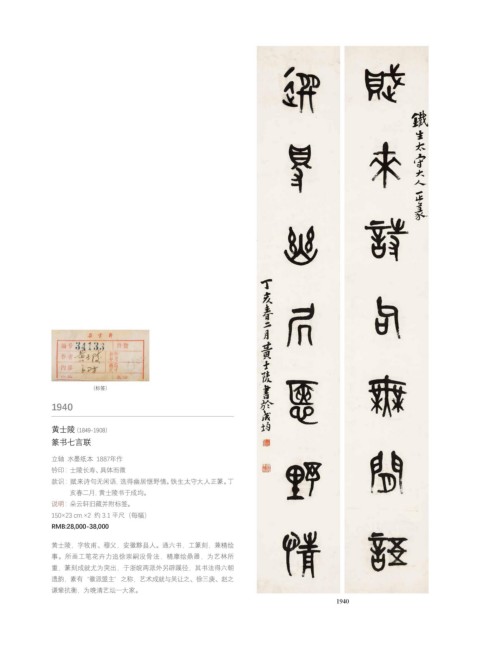 賤來詩句無閒語
選得幽居愜野情
鐵生太守大人正篆
丁亥春二月黄士陵書於成均
34733
(标签)
1940
黄士陵 (1849-1908)
篆书七言联
立轴 水墨纸本 1887年作
钤印：士陵长寿、具体而微
款识：赋来诗句无闲语，选得幽居惬野情。铁生太守大人正篆。丁
亥春二月，黄士陵书于成均。
说明：朵云轩旧藏并附标签。
150×23 cm ×2 约 3.1 平尺（每幅）
RMB:28,000-38,000
黄士陵，字牧甫、穆父，安徽黟县人。通六书，工篆刻，兼精绘
事。所画工笔花卉力追徐崇嗣没骨法，精摩绘鼎彝，为艺林所
重，篆刻成就尤为突出，于浙皖两派外另辟蹊径，其书法得六朝
遗韵，素有“徽派盟主”之称，艺术成就与吴让之、徐三庚、赵之
谦颦抗衡，为晚清艺坛一大家。
1940